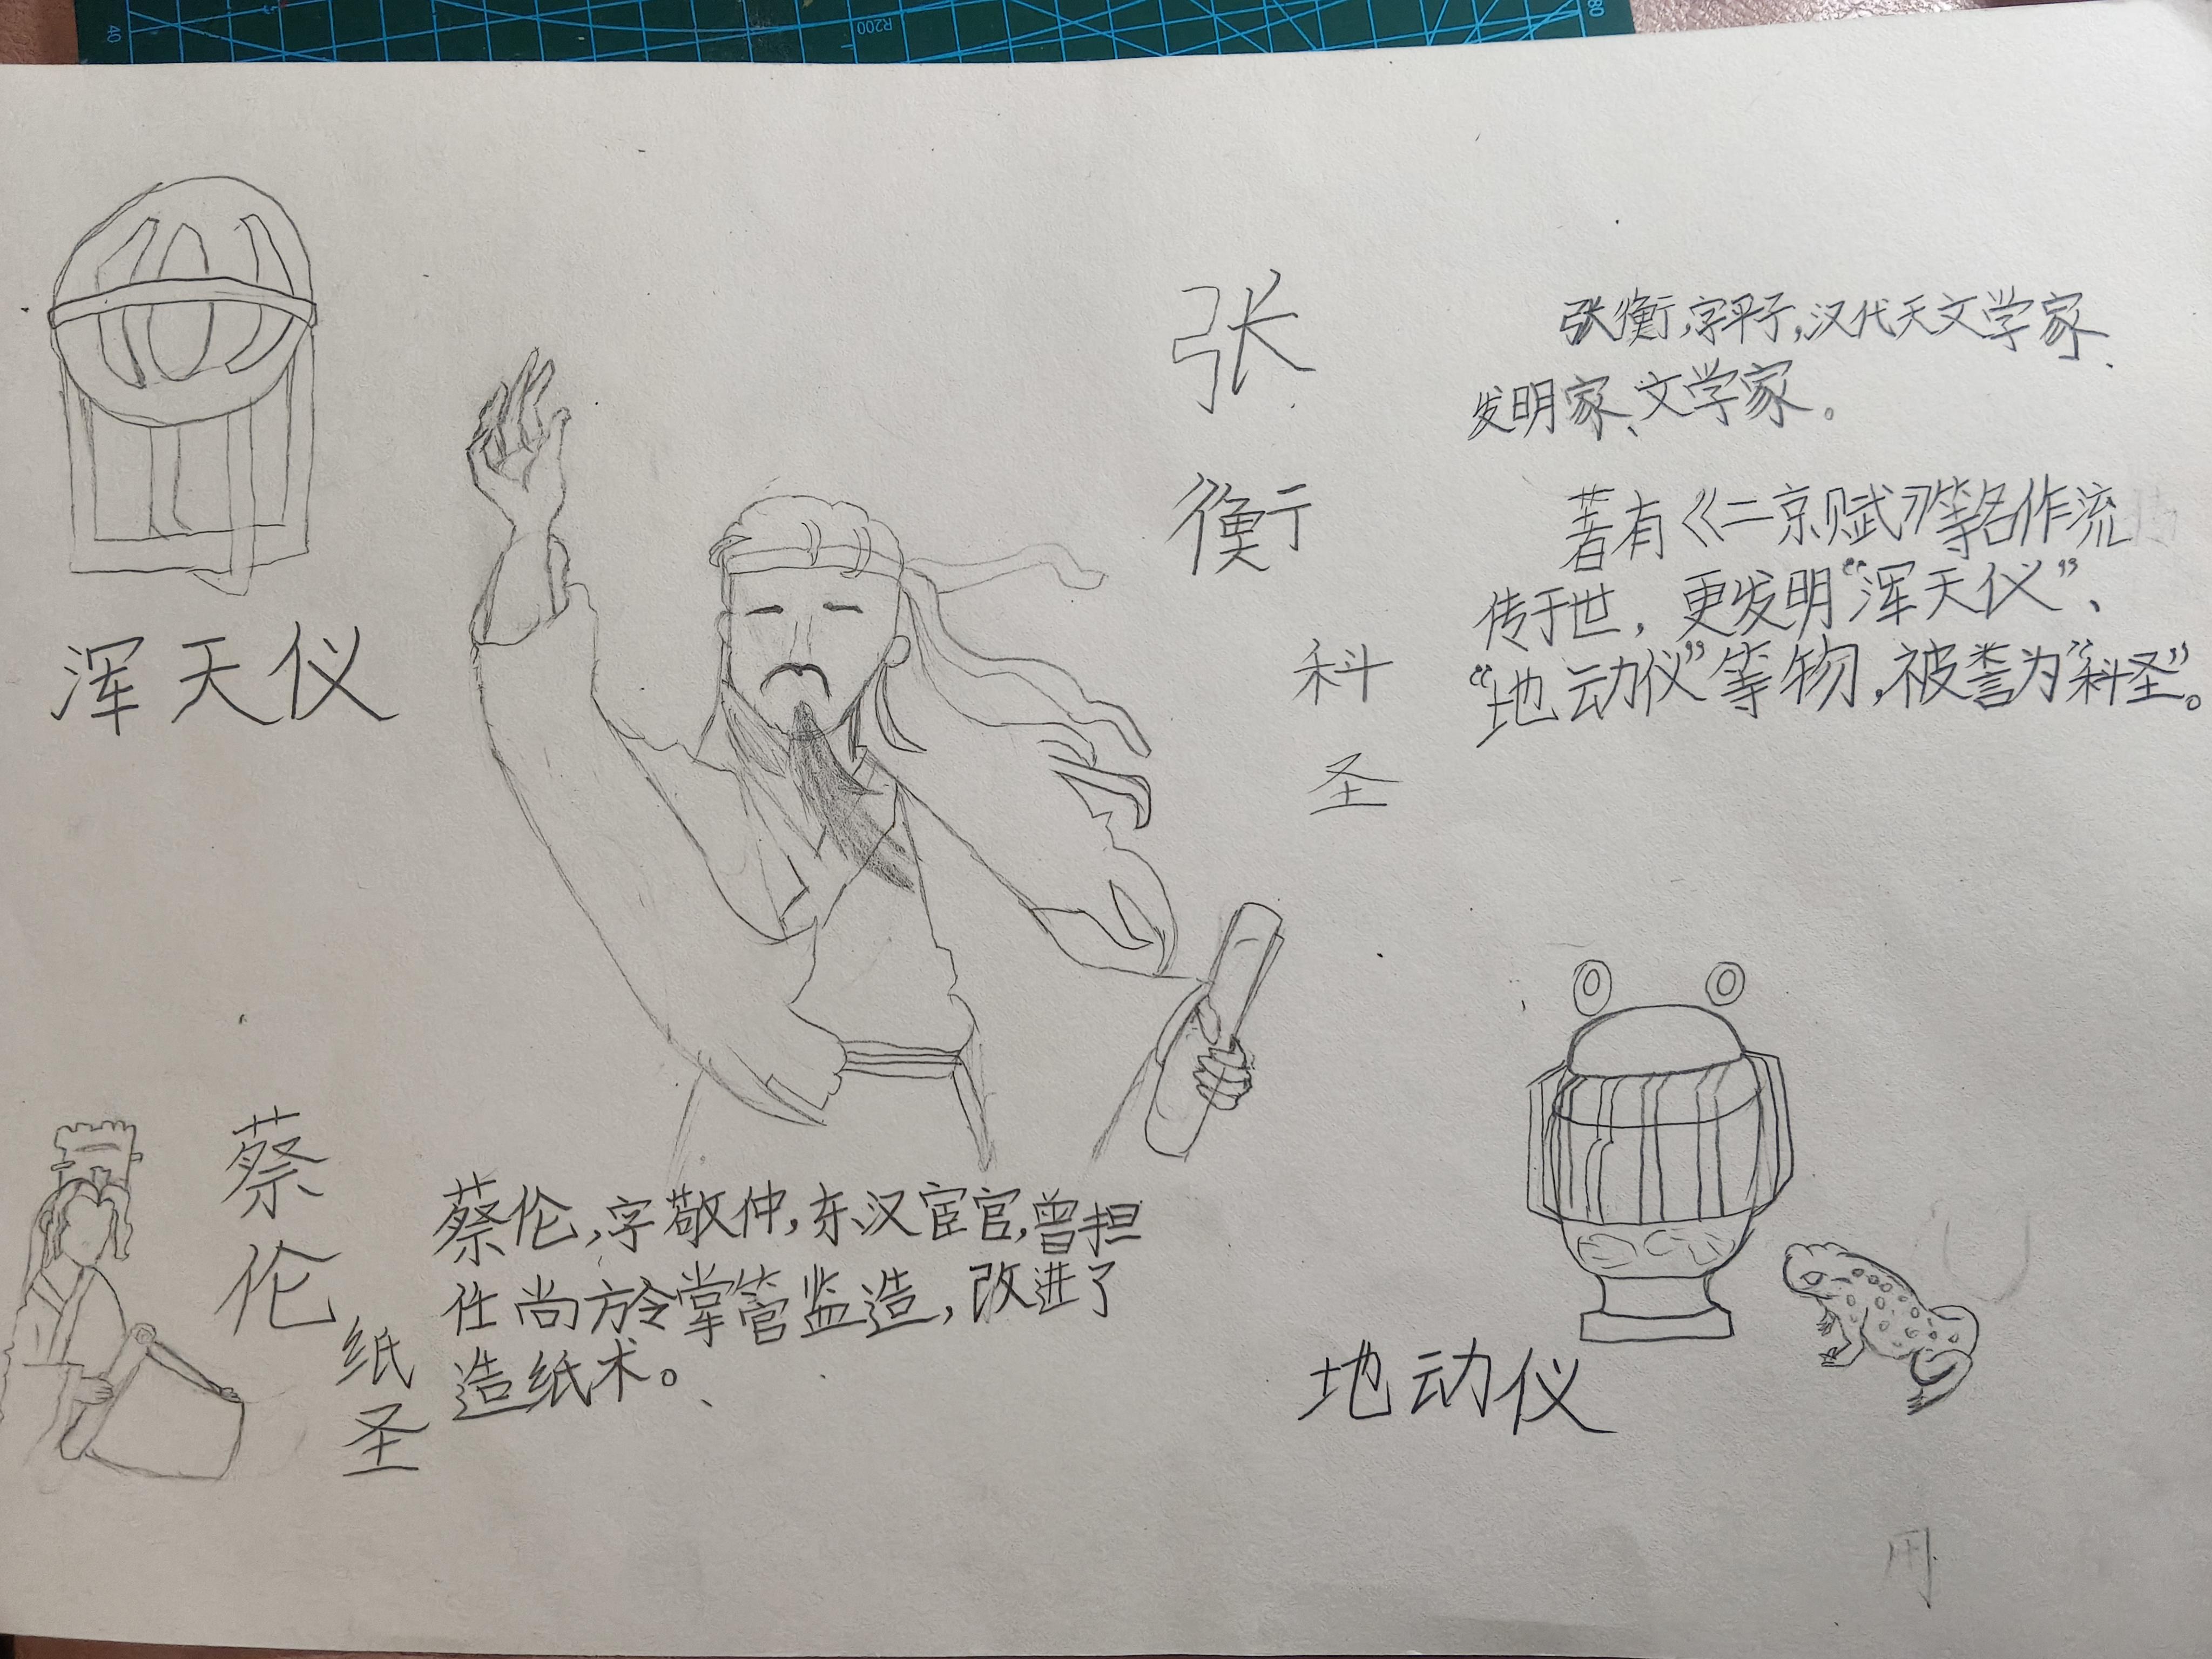 40
R200
80
浑天仪
张
衡
科
圣
张衡,字平子,汉代天文学家、
发明家、文学家。
著有《二京赋》等名作流
传于世,更发明“浑天仪”、
“地动仪”等物,被誉为“科圣”。
蔡
伦
纸
圣
蔡伦,字敬仲,东汉宦官,曾担
任尚方令掌管监造,改进了
造纸术。
地动仪